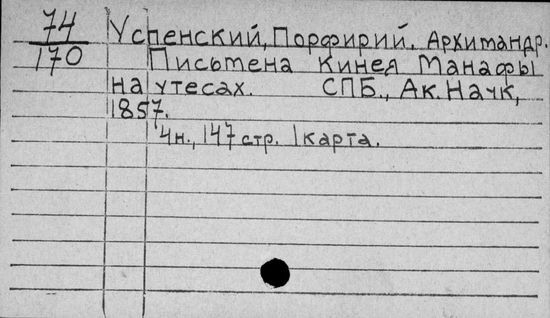 74
170
Успенский, Порфирий. Архимандр.
Письмена Кинея Манафы
на утесах. СПБ., Ак. Наук,
1857.
4н., 147 стр. 1 карта.